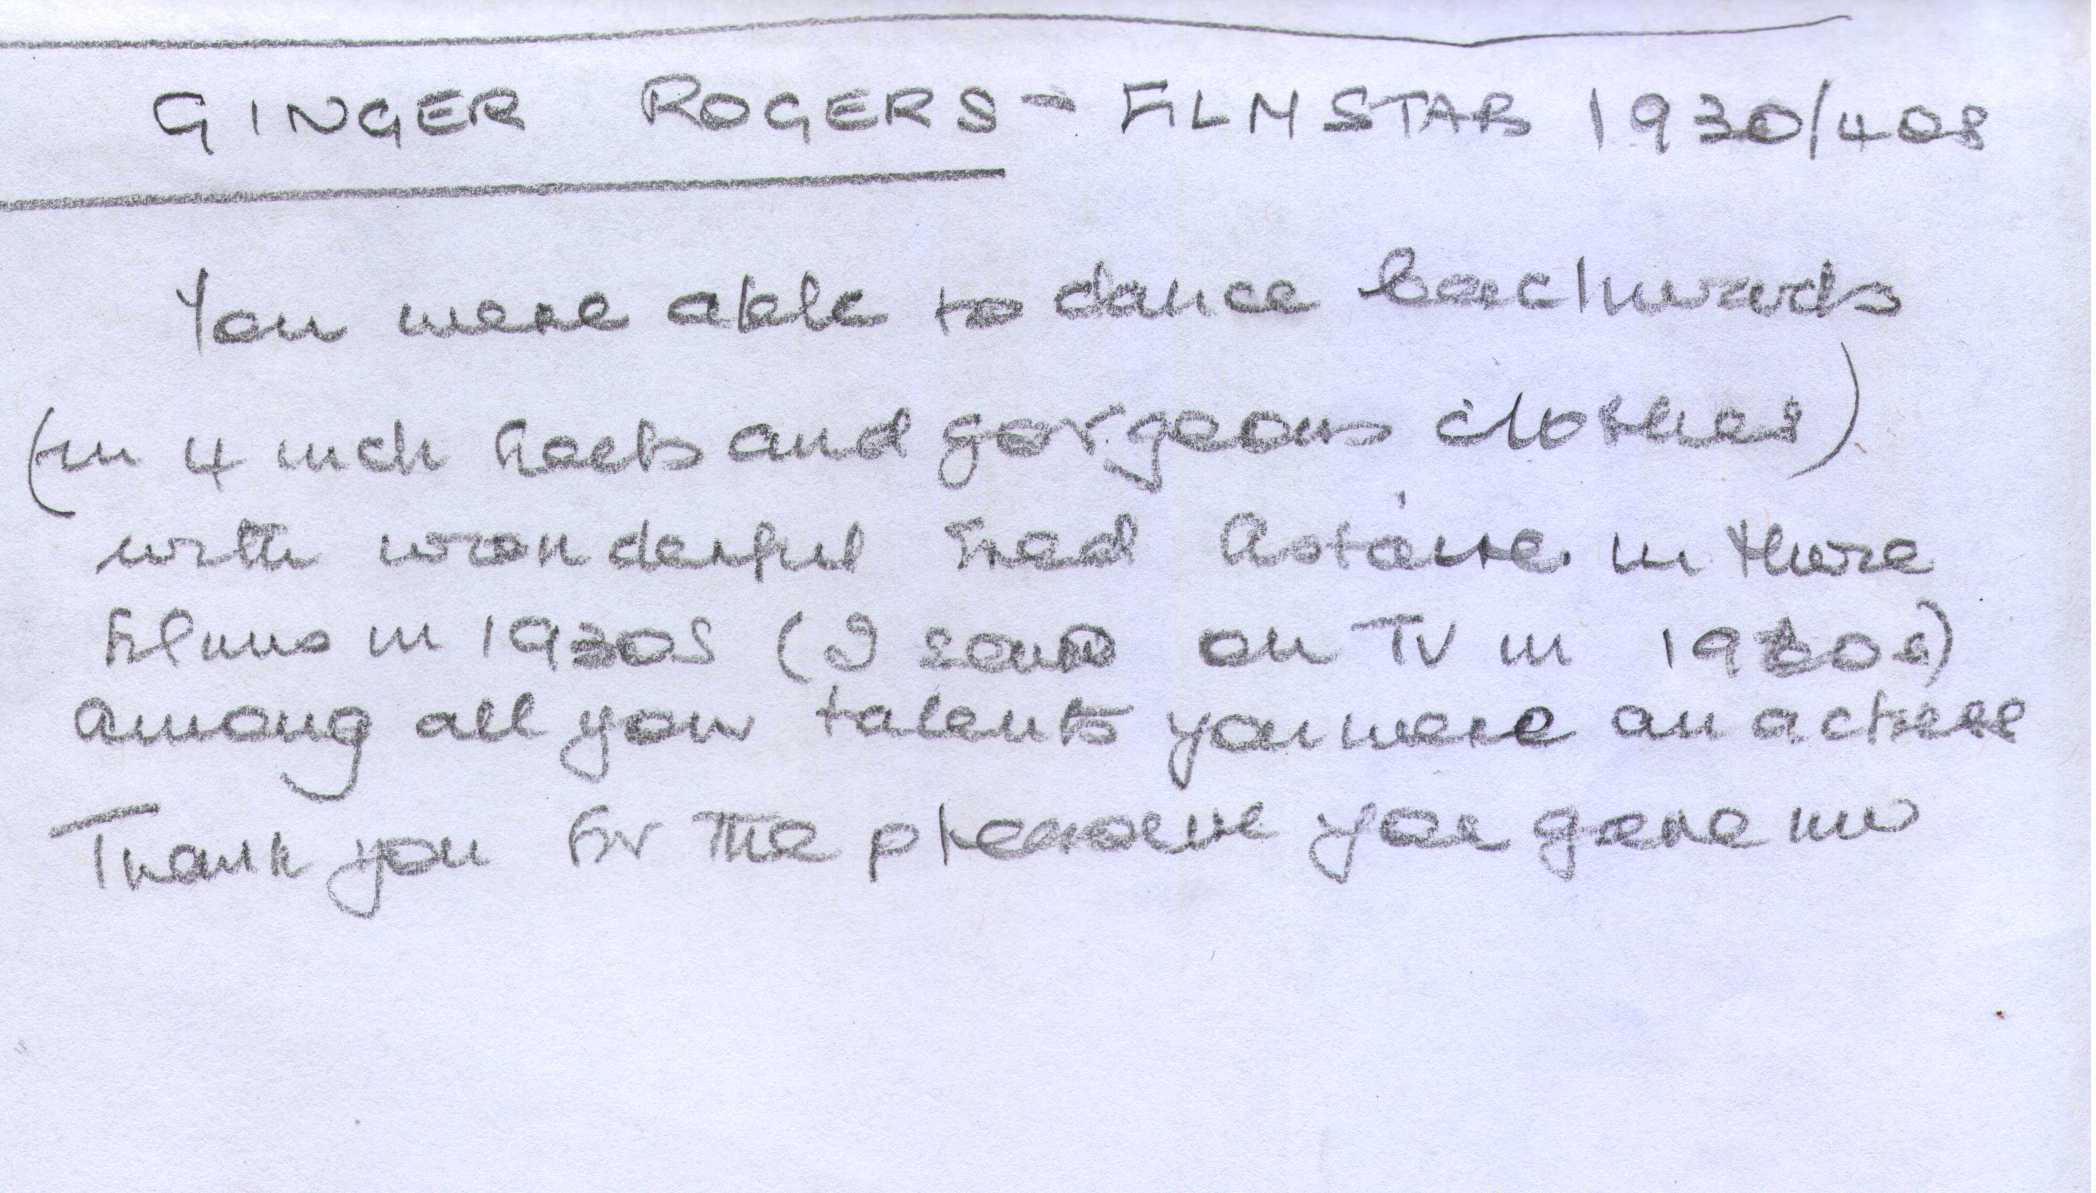 GINGER ROGERS - FILM STAR 1930/40s
You were able to dance backwards
(in 4 inch heels and gorgeous clothes)
with wonderful Fred Astaire. in there
films in 1930s (I saw on TV in 1960s)
among all your talents you were an actress
Thank you for the pleasure you gave me